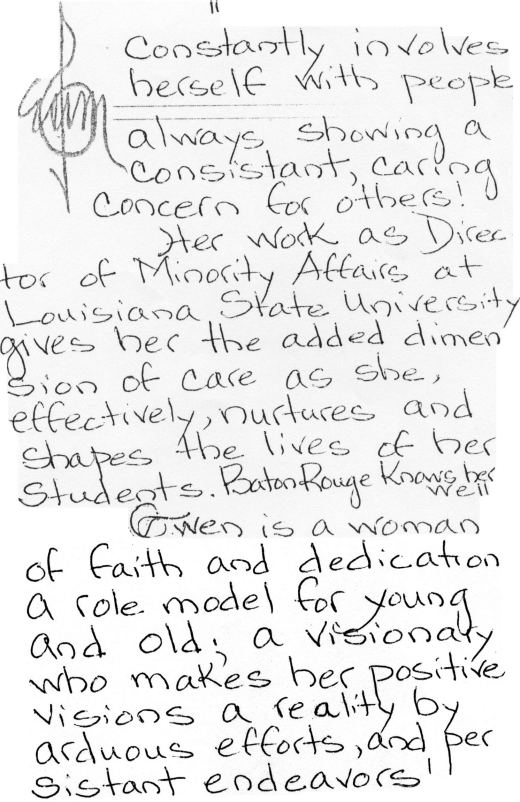 "
Constantly involves
herself with people
always showing a
consistant, caring
concern for others!
Her work as Direc
tor of Minority Affairs at
Louisiana State University
gives her the added dimen
sion of care as she,
effectively, nurtures and
shapes the lives of her
students. Baton Rouge Knows her
well
Gwen is a woman
of faith and dedication
a role model for young
and old; a visionary
who makes her positive
visions a reality by
arduous efforts, and per
sistant endeavors"